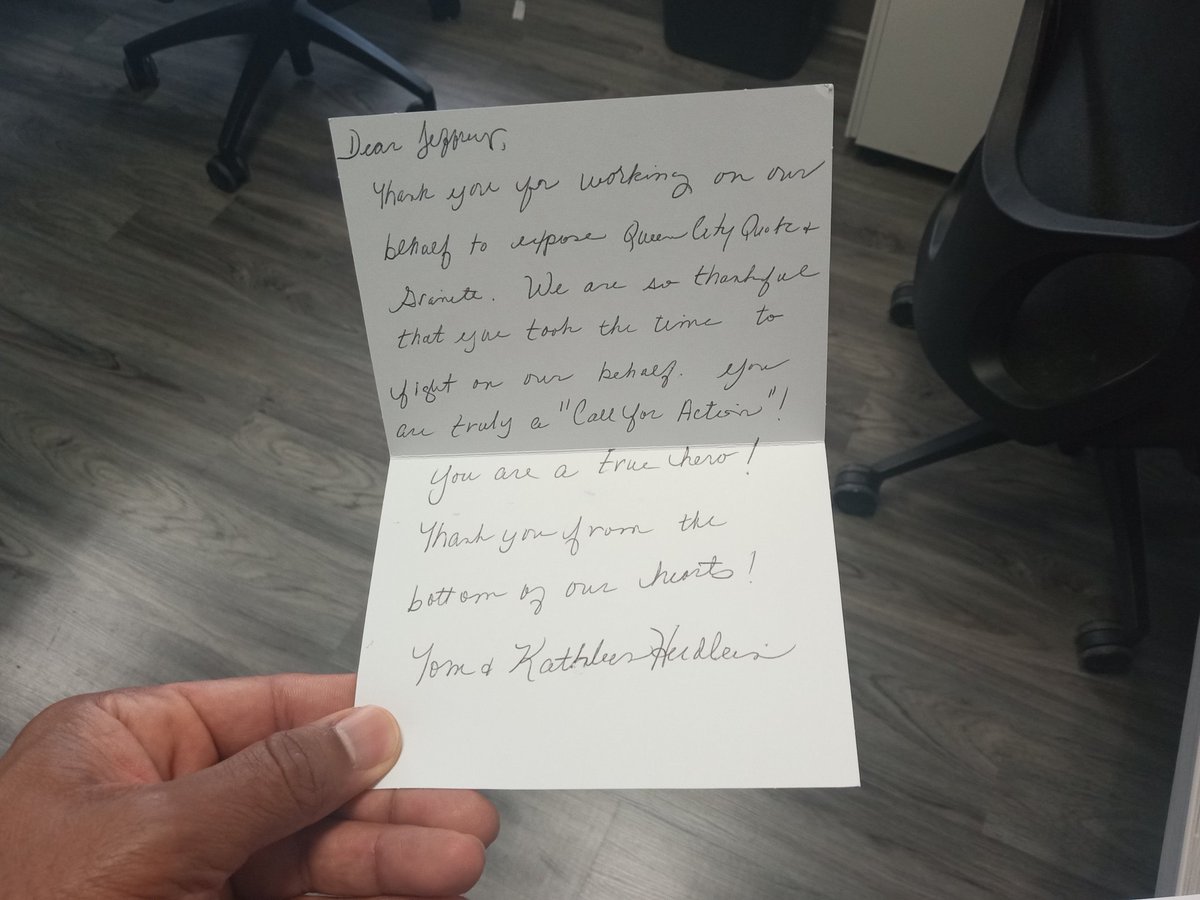 Dear Jeffrey,
Thank you for working on our
behalf to expose Queen City Quote +
Granite. We are so thankful
that you took the time to
fight on our behalf. You
are truly a "Call for Action"!
You are a true hero!
Thank you from the
bottom of our hearts!
Tom & Kathleen